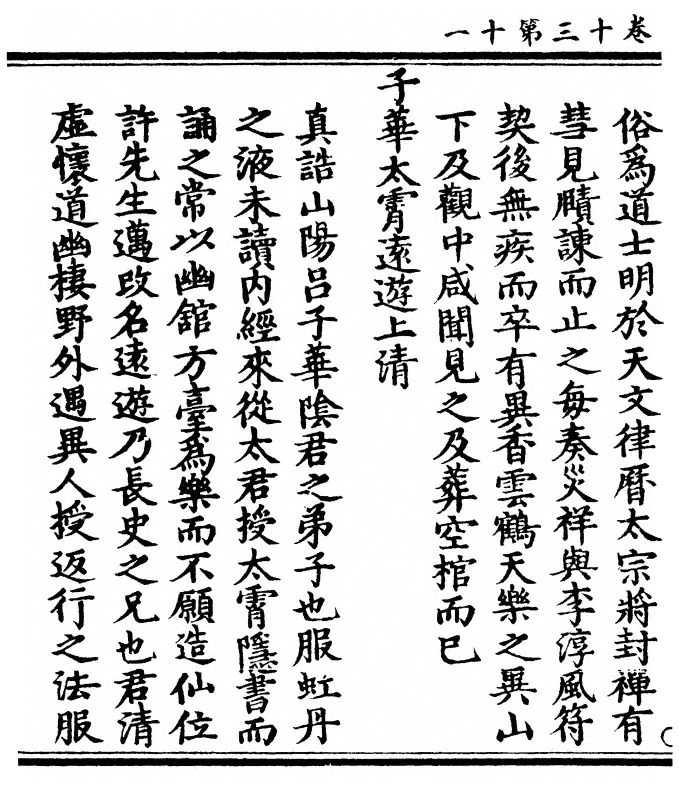 卷十三第十一
俗為道士明於天文律曆太宗將封禪有
彗見賾諫而止之每奏災祥與李淳風符
契後無疾而卒有異香雲鶴天樂之異山
下及觀中咸聞見之及葬空棺而已
子華太霄遠遊上清
真誥山陽呂子華陰君之弟子也服虹丹
之液未讀內經來從太君授太霄隱書而
誦之常以幽館方臺為樂而不願造仙位
許先生邁改名遠遊乃長史之兄也君清
虛懷道幽棲野外遇異人授返行之法服